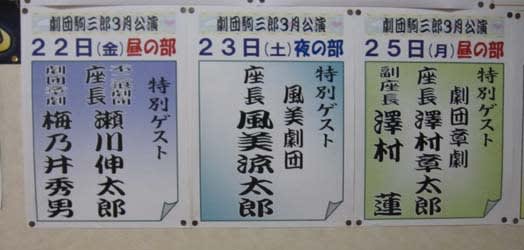 劇団駒三郎3月公演
22日(金)昼の部
特別ゲスト
座長 瀬川伸太郎
劇団章劇
梅乃井秀男
劇団駒三郎3月公演
23日(土)夜の部
特別ゲスト
風美劇団
座長 風美涼太郎
劇団駒三郎3月公演
25日(月)昼の部
特別ゲスト
劇団章劇
座長 澤村章太郎
副座長 澤村 蓮